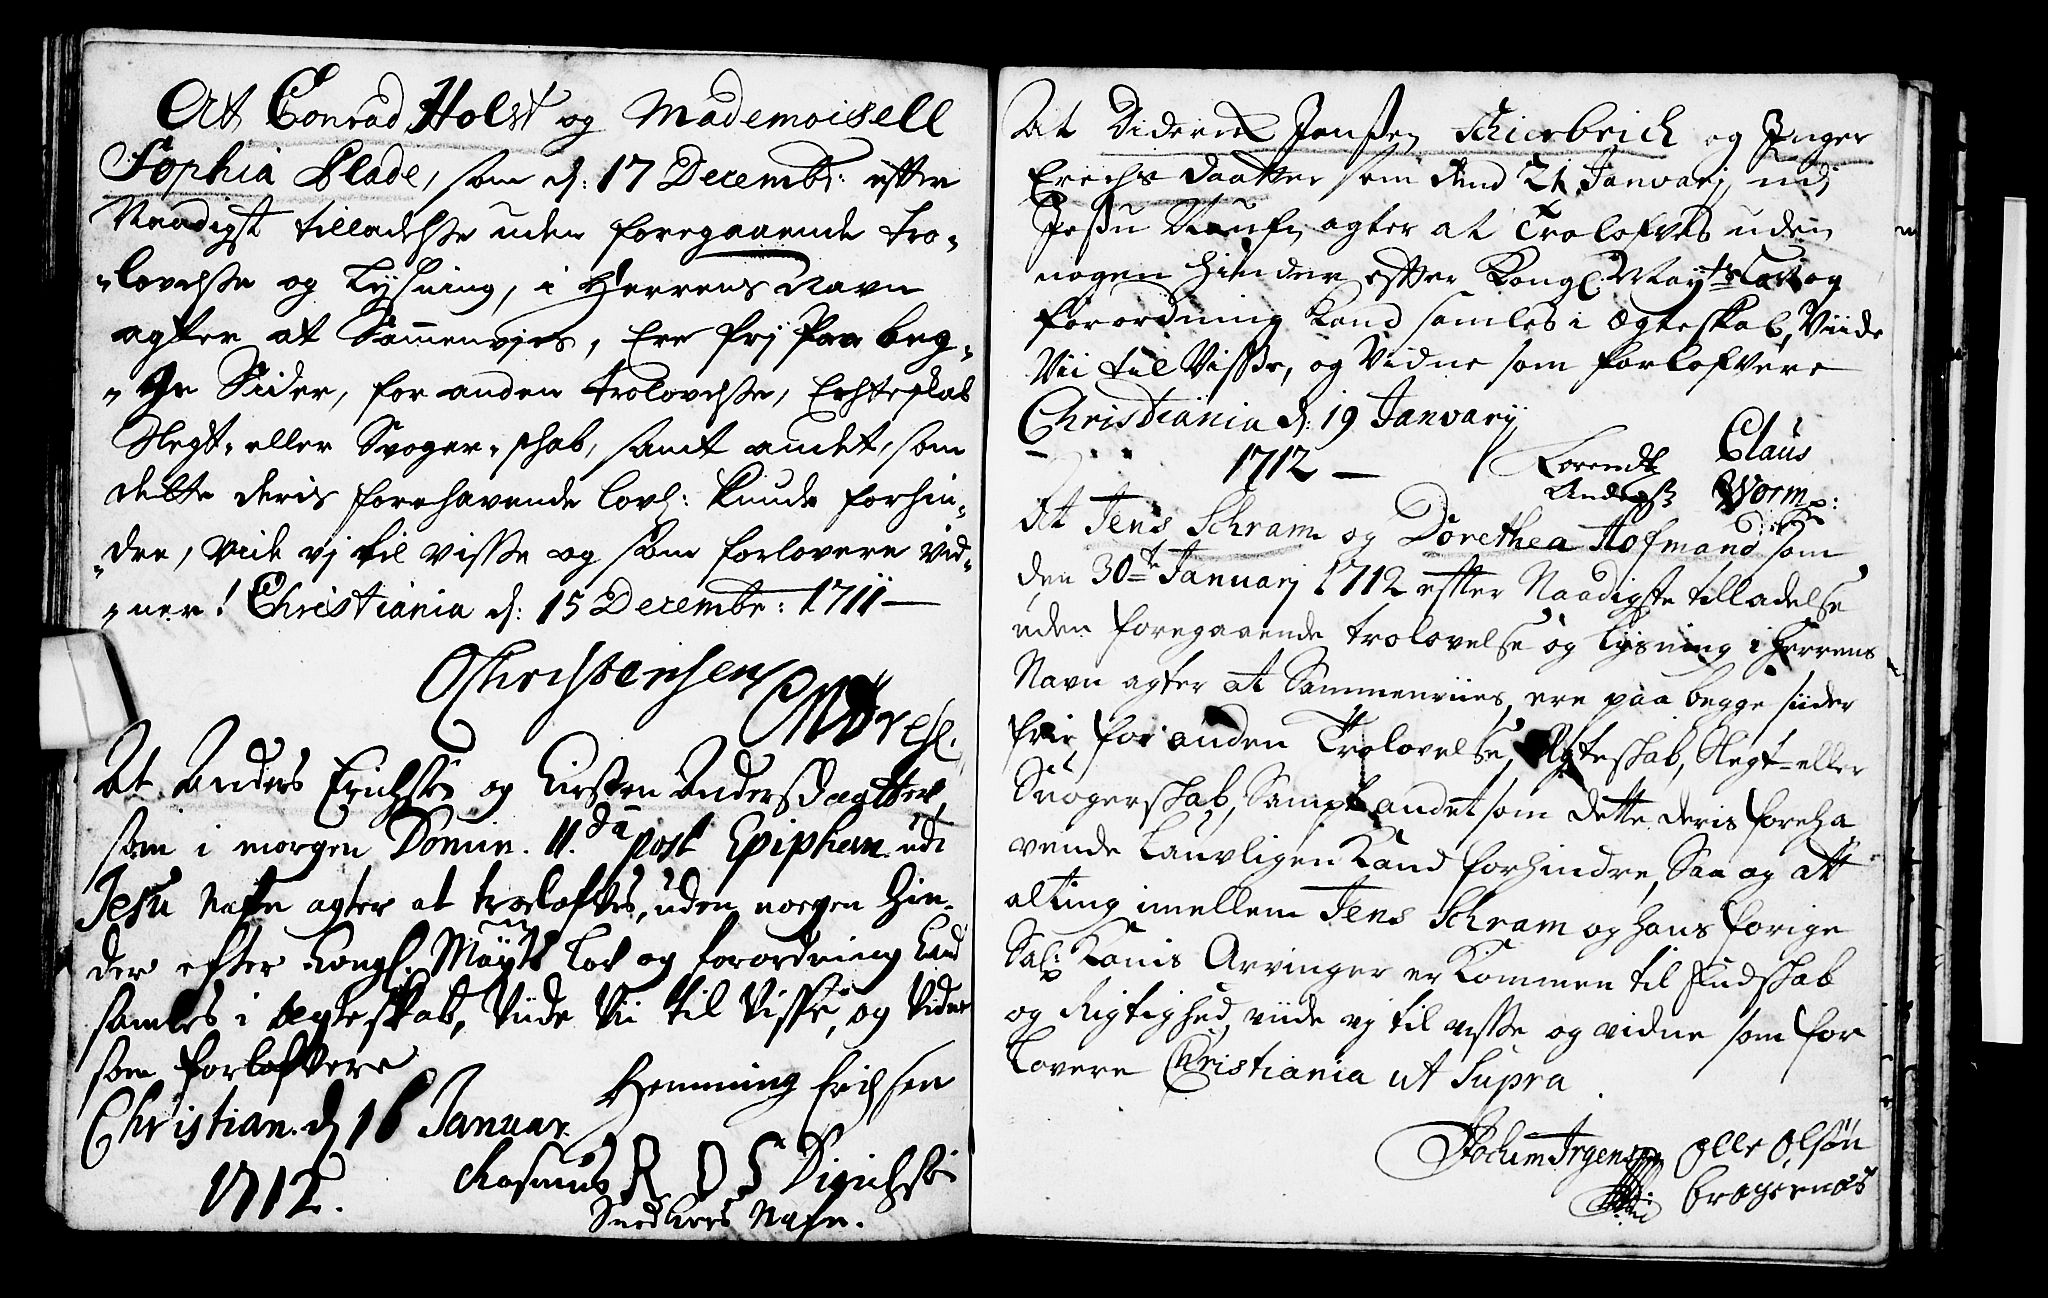 At Conrad Holst og Mademoisell
Sophia Blade, som d: 17 Decembr: efter
Naadigst tilladelsse uden foregaaende tro-
-lovelsse og Lysning, i Herrens Navn
agter at Sammenvies, Ere frj paa beg-
-ge Sider, for anden trolovelsse, Echteskab
Slegt- eller Svoger-schab, samt andet, som
dette deris forehavende lovl: kunde forhin-
-dre, viide vj til visse og som forlovere vid-
-ner! Christiania d: 15 Decembr: 1711
Christensen
At Anders Erichsøn og Kirsten Andersdaatter,
som i morgen Domin. II.da post Epiphan. udi
Jesu Nafn agter at trolofves, uden nogen Hin-
der efter Kongl. Mayts Lov og forordning kand
samles i ægteskab, Viide Vii til Visse, og Vidne
som forlofvere
Christian. d 16 Januar.
1712.
Hemming Erichsen
Rasmus R D S Dirichsøn
Snedkers Nafn.
At Diderich Jenssen Schierbeich og Inger
Erichs daatter som dend 21 Januarj udj
Jesu Naufn agter at Trolofves uden
nogen hinder efter Kongl: Mayts Lov og
forordning kand samles i Ægteskab, Viide
Vii til Visse, og Vidne som forlofvere
Christiania d: 19 Januarij
1712
Lorendtz Claus
Anders: Worm
At Jens Schram og Dorethea Hofmand som
den 30te Januarj 1712 efter Naadigste tilladelse
uden foregaaende trolovelse og Lysning i Herrens
Navn agter at Sammenviies, ere paa begge siider
frie for anden Trolovelse, Ægteskab, Slegt- eller
Svogerskab, Sampt andet som dette deris foreha
vende Lauvligen kand forhindre, Saa og att
alting imellem Jens Schram og hans forige
Sal: Konis Arvinger er kommen til Endskab
og Rigtighed, viide vj til visse og vidne som for
lovere Christiania ut Supra
Jochum Irgens Olle Olsøn
bragernæs